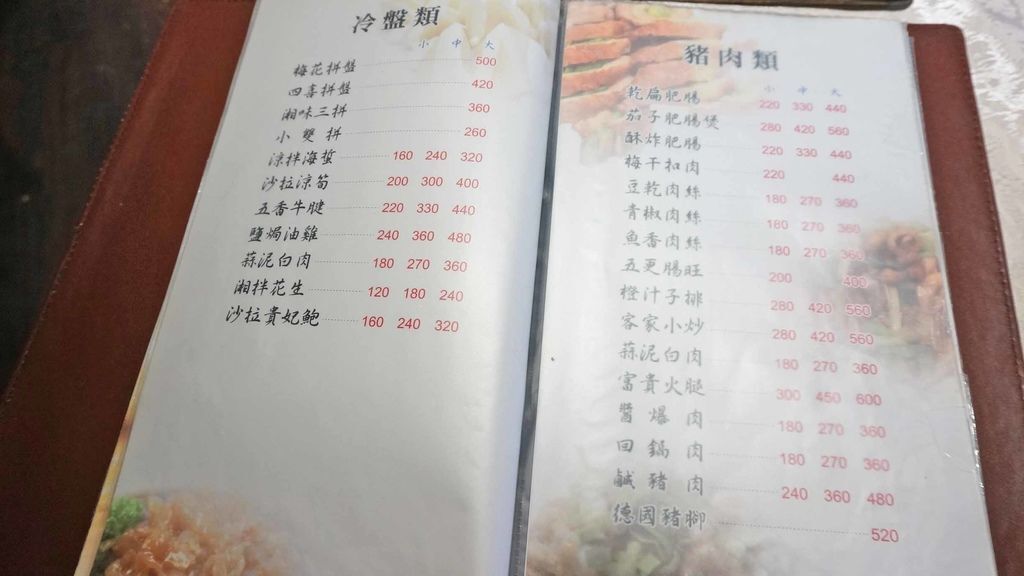 冷盤類
小 中 大
梅花拼盤 500
四喜拼盤 420
湘味三拼 360
小雙拼 260
涼拌海蜇 160 240 320
沙拉涼筍 200 300 400
五香牛腱 220 330 440
鹽焗油雞 240 360 480
蒜泥白肉 180 270 360
湘拌花生 120 180 240
沙拉貴妃鮑 160 240 320
豬肉類
小 中 大
乾扁肥腸 220 330 440
茄子肥腸煲 280 420 560
酥炸肥腸 220 330 440
梅干扣肉 220 440
豆乾肉絲 180 270 360
青椒肉絲 180 270 360
魚香肉絲 180 270 360
五更腸旺 200 400
橙汁子排 280 420 560
客家小炒 280 420 560
蒜泥白肉 180 270 360
富貴火腿 300 450 600
醬爆肉 180 270 360
回鍋肉 180 270 360
鹹豬肉 240 360 480
德國豬腳 520